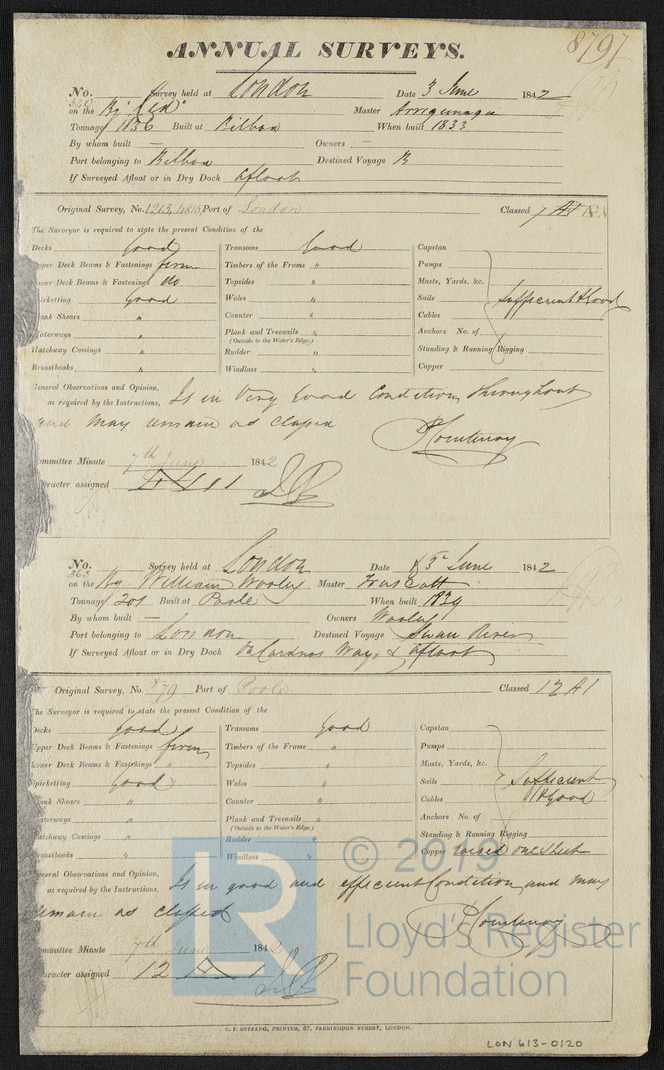 8797
ANNUAL SURVEYS.
No. Survey held at London Date 3 June 1842
on the Bg "Cid" Master
Tonnage 1836 Built at Bilboa When built 1833
By whom built — Owners —
Port belonging to Bilboa Destined Voyage B
If Surveyed Afloat or in Dry Dock Afloat
Original Survey, No. Port of London Classed
The Surveyor is required to state the present Condition of the
Decks Good Transoms Good Capstan
pper Deck Beams & Fastenings firm Timbers of the Frame " Pumps
ower Deck Beams & Fastenings do Topsides " Masts, Yards, &c.
pirketting Good Wales " Sails Sufficient & Good
ank Shears " Counter " Cables
aterways " Plank and Treenails " Anchors No. of
(Outside to the Water's Edge.)
Hatchway Comings " Rudder " Standing & Running Rigging
Breasthooks " Windlass " Copper
General Observations and Opinion,
as required by the Instructions, Is in Very Good Condition throughout
and may remain as classed
P Courtenay
ommittee Minute 7th June 1842
aracter assigned
No. Survey held at London Date 3 June 1842
363
on the Bg William Wooley Master
Tonnage 201 Built at Poole When built 1839
By whom built — Owners Wooley
Port belonging to London Destined Voyage Swan River
If Surveyed Afloat or in Dry Dock On Cardnos Ways & Afloat
Original Survey, No. 79 Port of Poole Classed 12 A1
The Surveyor is required to state the present Condition of the
Decks Good Transoms Good Capstan
Upper Deck Beams & Fastenings firm Timbers of the Frame " Pumps
Lower Deck Beams & Fastenings " Topsides " Masts, Yards, &c.
Spirketting Good Wales " Sails Sufficient
ank Shears " Counter " Cables & Good
aterways " Plank and Treenails " Anchors No. of
(Outside to the Water's Edge.)
atchway Comings " Rudder " Standing & Running Rigging
reasthooks " Windlass " Copper raised one Sheet
eneral Observations and Opinion,
as required by the Instructions, Is in good and efficient Condition and may
remain as classed
P Courtenay
ommittee Minute 7th June 1842
aracter assigned 12 A 1
C. F. SEYFANG, PRINTER, 57, FARRINGDON STREET, LONDON.
LON 613-0120
LR © 2019
Lloyd's Register
Foundation